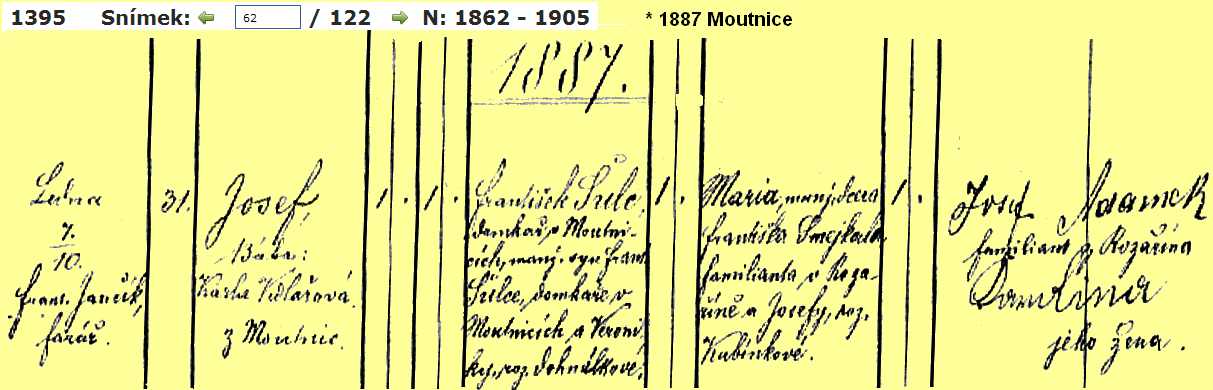 1395 Snímek: 62 / 122 N: 1862 - 1905 * 1887 Moutnice
1887.
Ledna
7.
10.
Frant. Jančík,
farář.
31.
Josef,
Bába:
Vidlářová
z Moutnic.
1 . 1 .
František Šulc,
domkař v Moutni-
cích, manž. syn Frant.
Šulce, domkaře v
Moutnicích a Veroni-
ky, roz. Dohnálkové.
1 .
Maria, manž. dcera
Františka Smejkala
familianta v Roza-
říně a Josefy, roz.
Kubínkové.
1 .
Josef Adamek
familiant z Rozařína
Karolina
jeho žena.